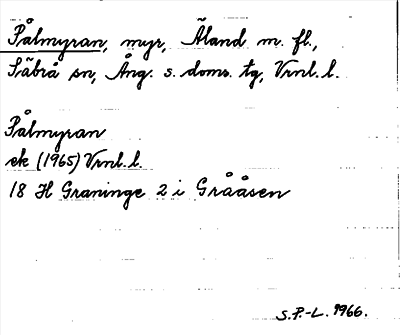 Pålmyran, myr, Äland m. fl.,
Säbrå sn, Ång. s. doms. tg, Vrnl. l.
Pålmyran
ek (1965) Vrnl. l.
18 H Graninge 2 i Grååsen
S.P.-L. 1966.